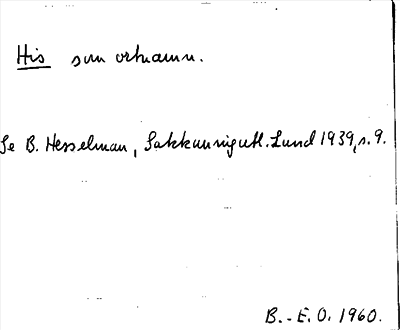 His som ortnamn.
Se B. Hesselman, Sakkunnigutl. Lund 1939, s. 9.
B.-E.O. 1960.